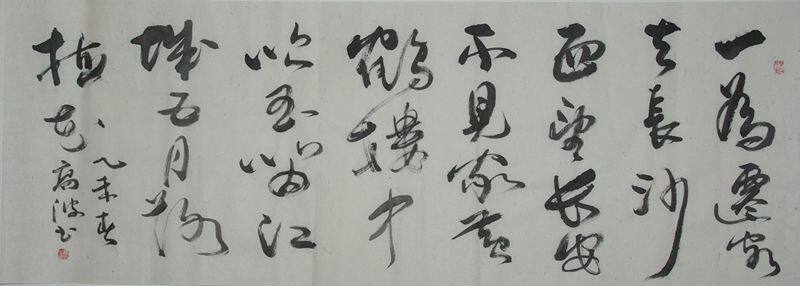 一為遷客
去長沙
西望长安
不見家黄
鶴樓中
吹玉笛江
城五月落
梅花
乙未春
高波书